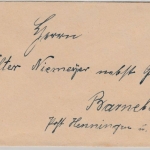 Herrn
Walter Niemeyer nebst G
Barnet
Post Henningen